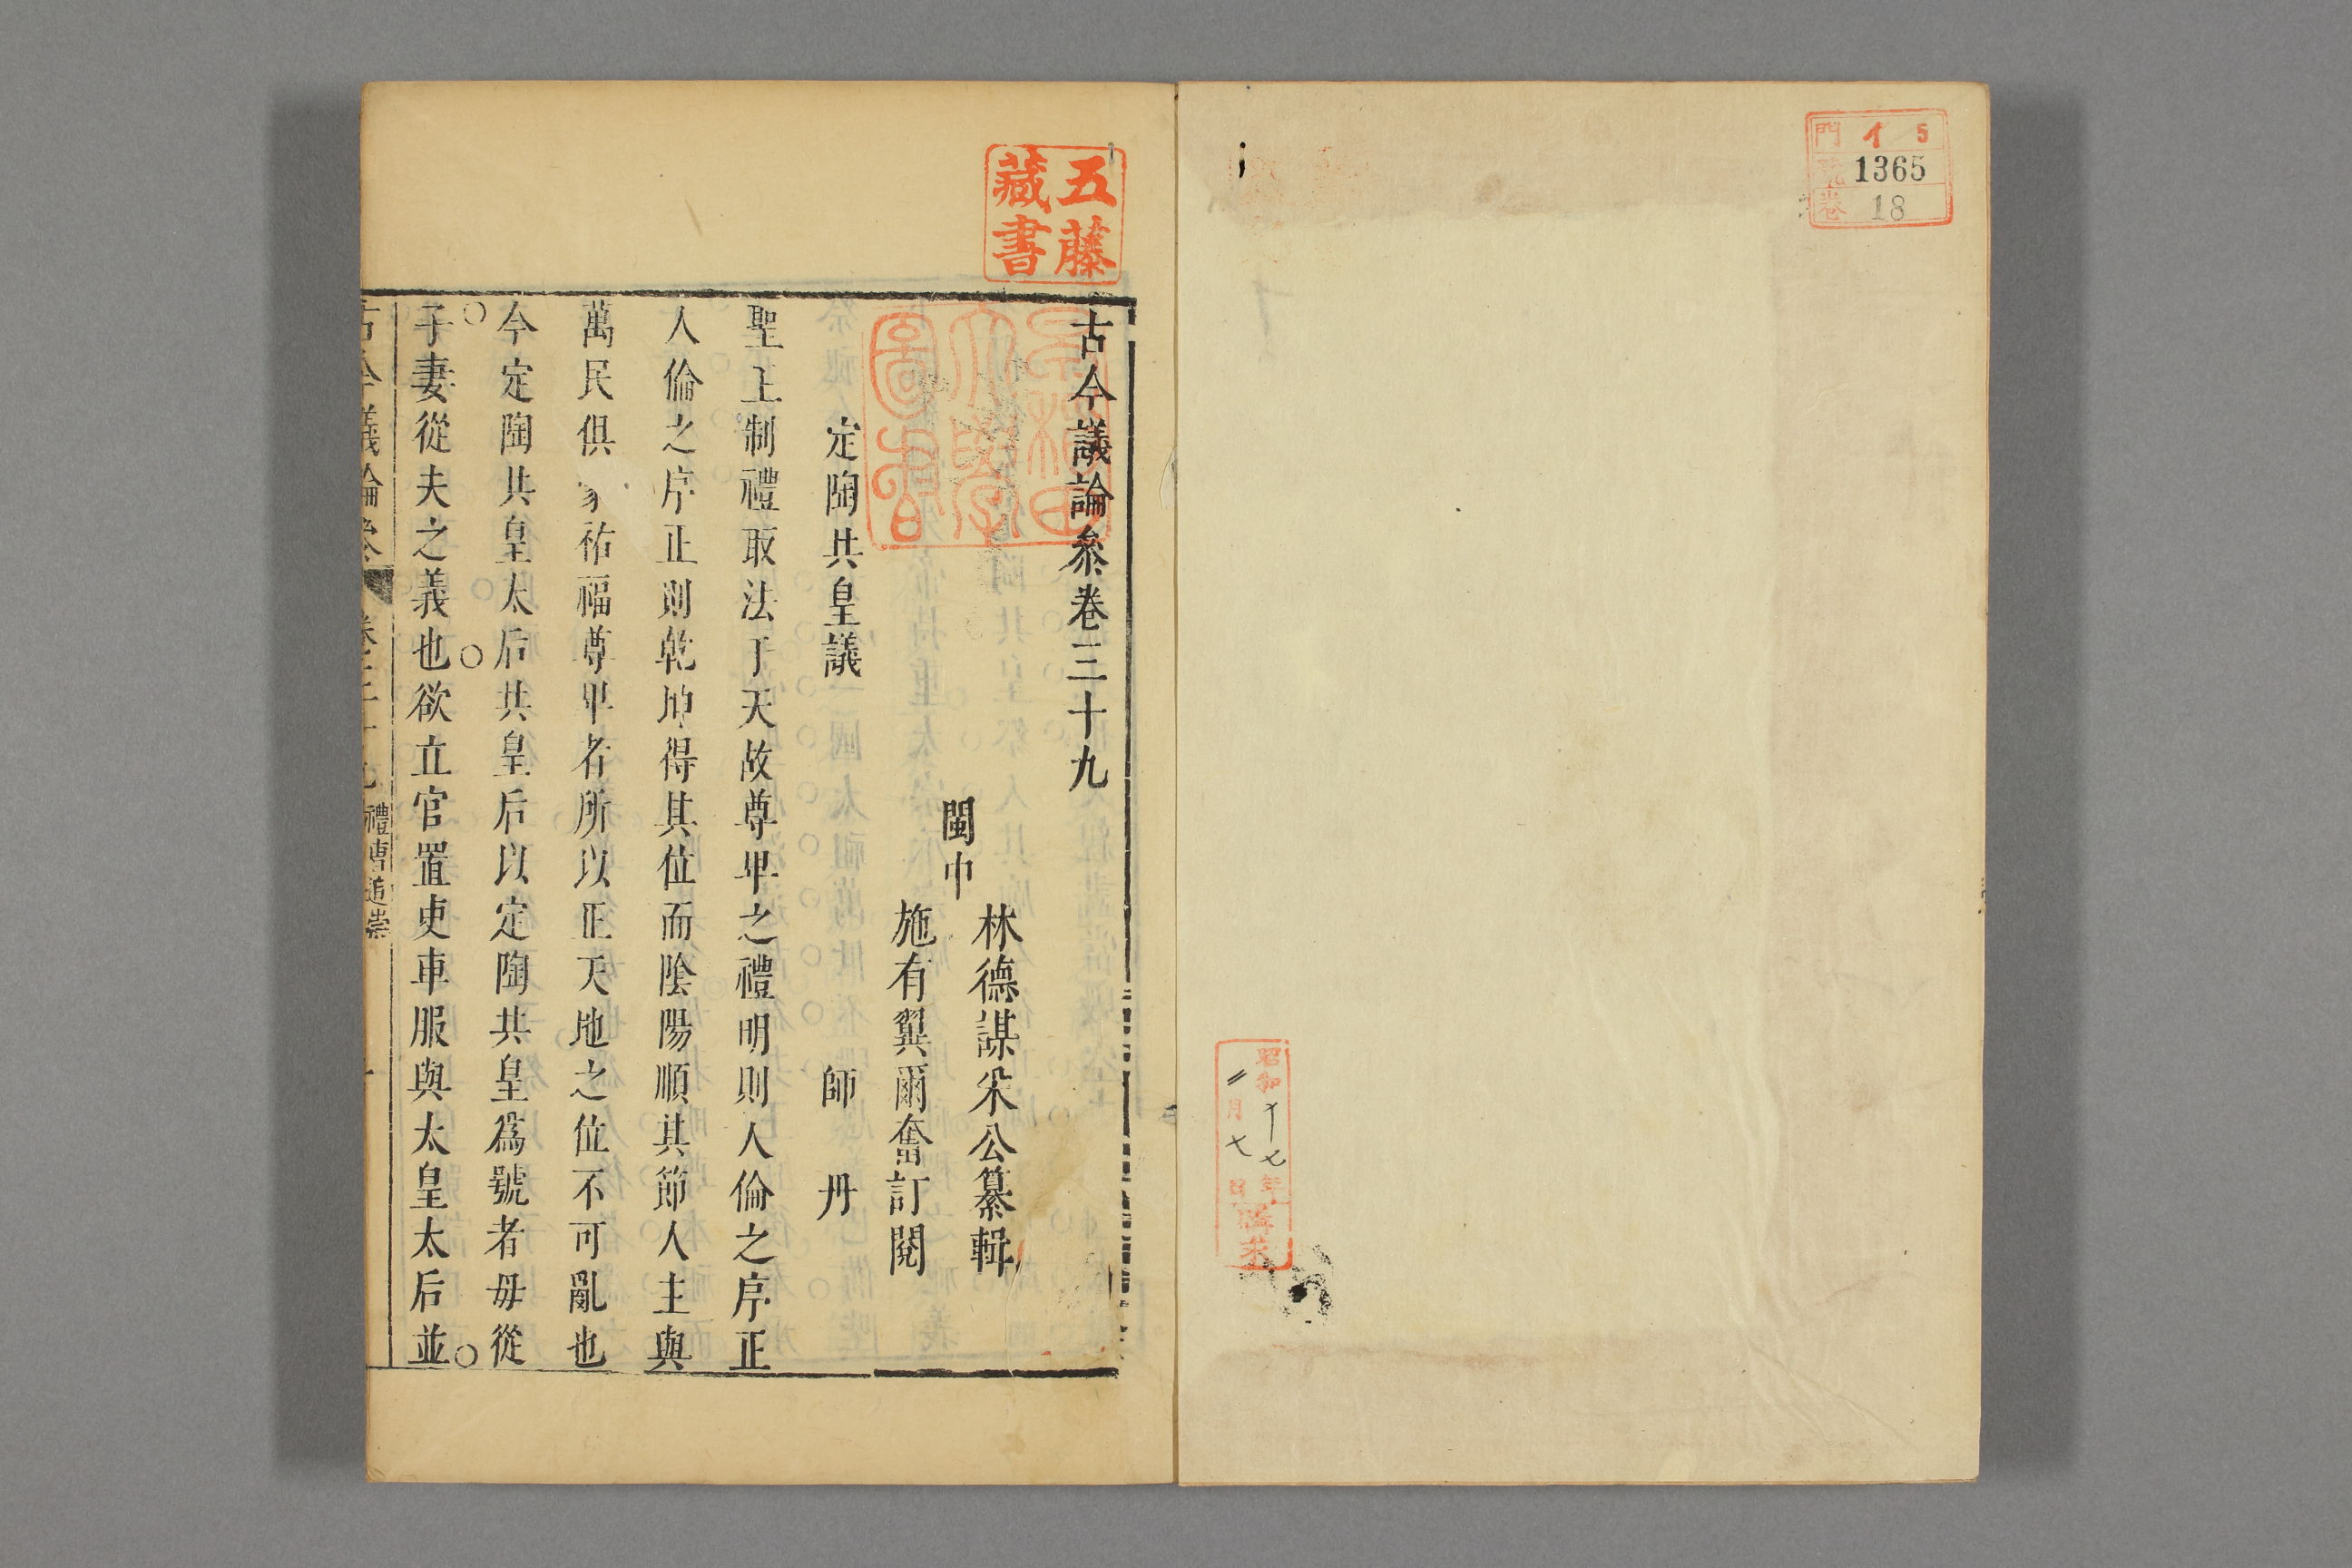 門 イ 5
號 1365
卷 18
昭和十七年
〃月七日
購求
五藤
藏書
早稲田
大學
圖書
古今議論叅卷三十九
閩中
林德謀采公纂輯
施有翼爾奮訂閱
定陶共皇議 師丹
聖王制禮取法于天故尊卑之禮明則人倫之序正
人倫之序正則乾坤得其位而陰陽順其節人主與
萬民俱家祐福尊卑者所以正天地之位不可亂也
今定陶共皇太后共皇后以定陶共皇爲號者毋從
子妻從夫之義也欲立官置吏車服與太皇太后並
古今議論叅 卷三十九 禮 追崇